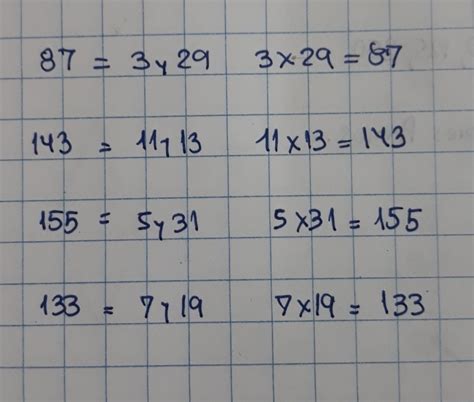 87 = 3 y 29 3 x 29 = 87
143 = 11 y 13 11 x 13 = 143
155 = 5 y 31 5 x 31 = 155
133 = 7 y 19 7 x 19 = 133